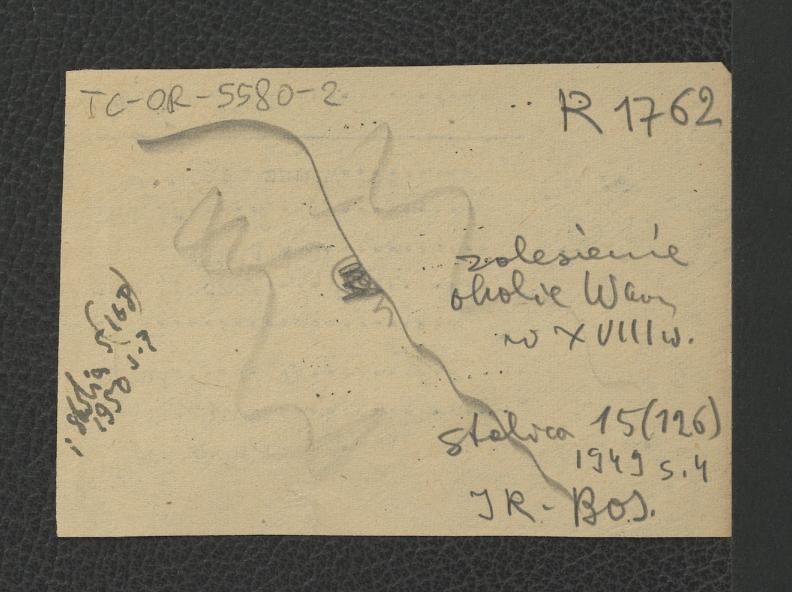 TC-OR-5580-2
R 1762
zalesienie
okolic Warsz
w XVIII w.
Stolica 15(126)
1949 s.4
JR-BOS.
i Stolica 5(168)
1950 s.7